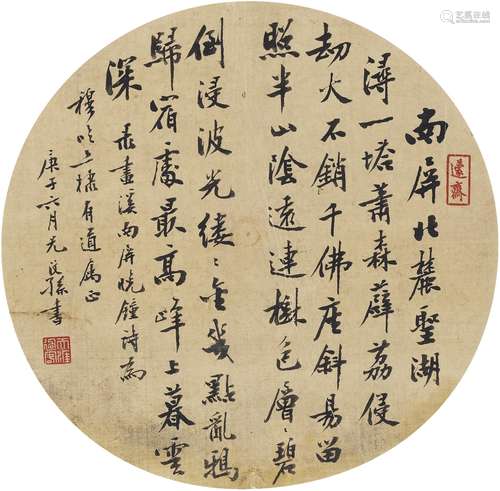 遠齋
南屏北麓聖湖
潯一塔蕭森薜荔侵
劫火不銷千佛座斜昜留
照半山陰遠連樹色層〻碧
倒浸波光縷〻金幾點亂鴉
歸宿處最高峰上暮雲
深
录畫溪南屏晚鐘詩為
穆吟六棣有道屬正
庚子六月元 孫書
艺狐在线